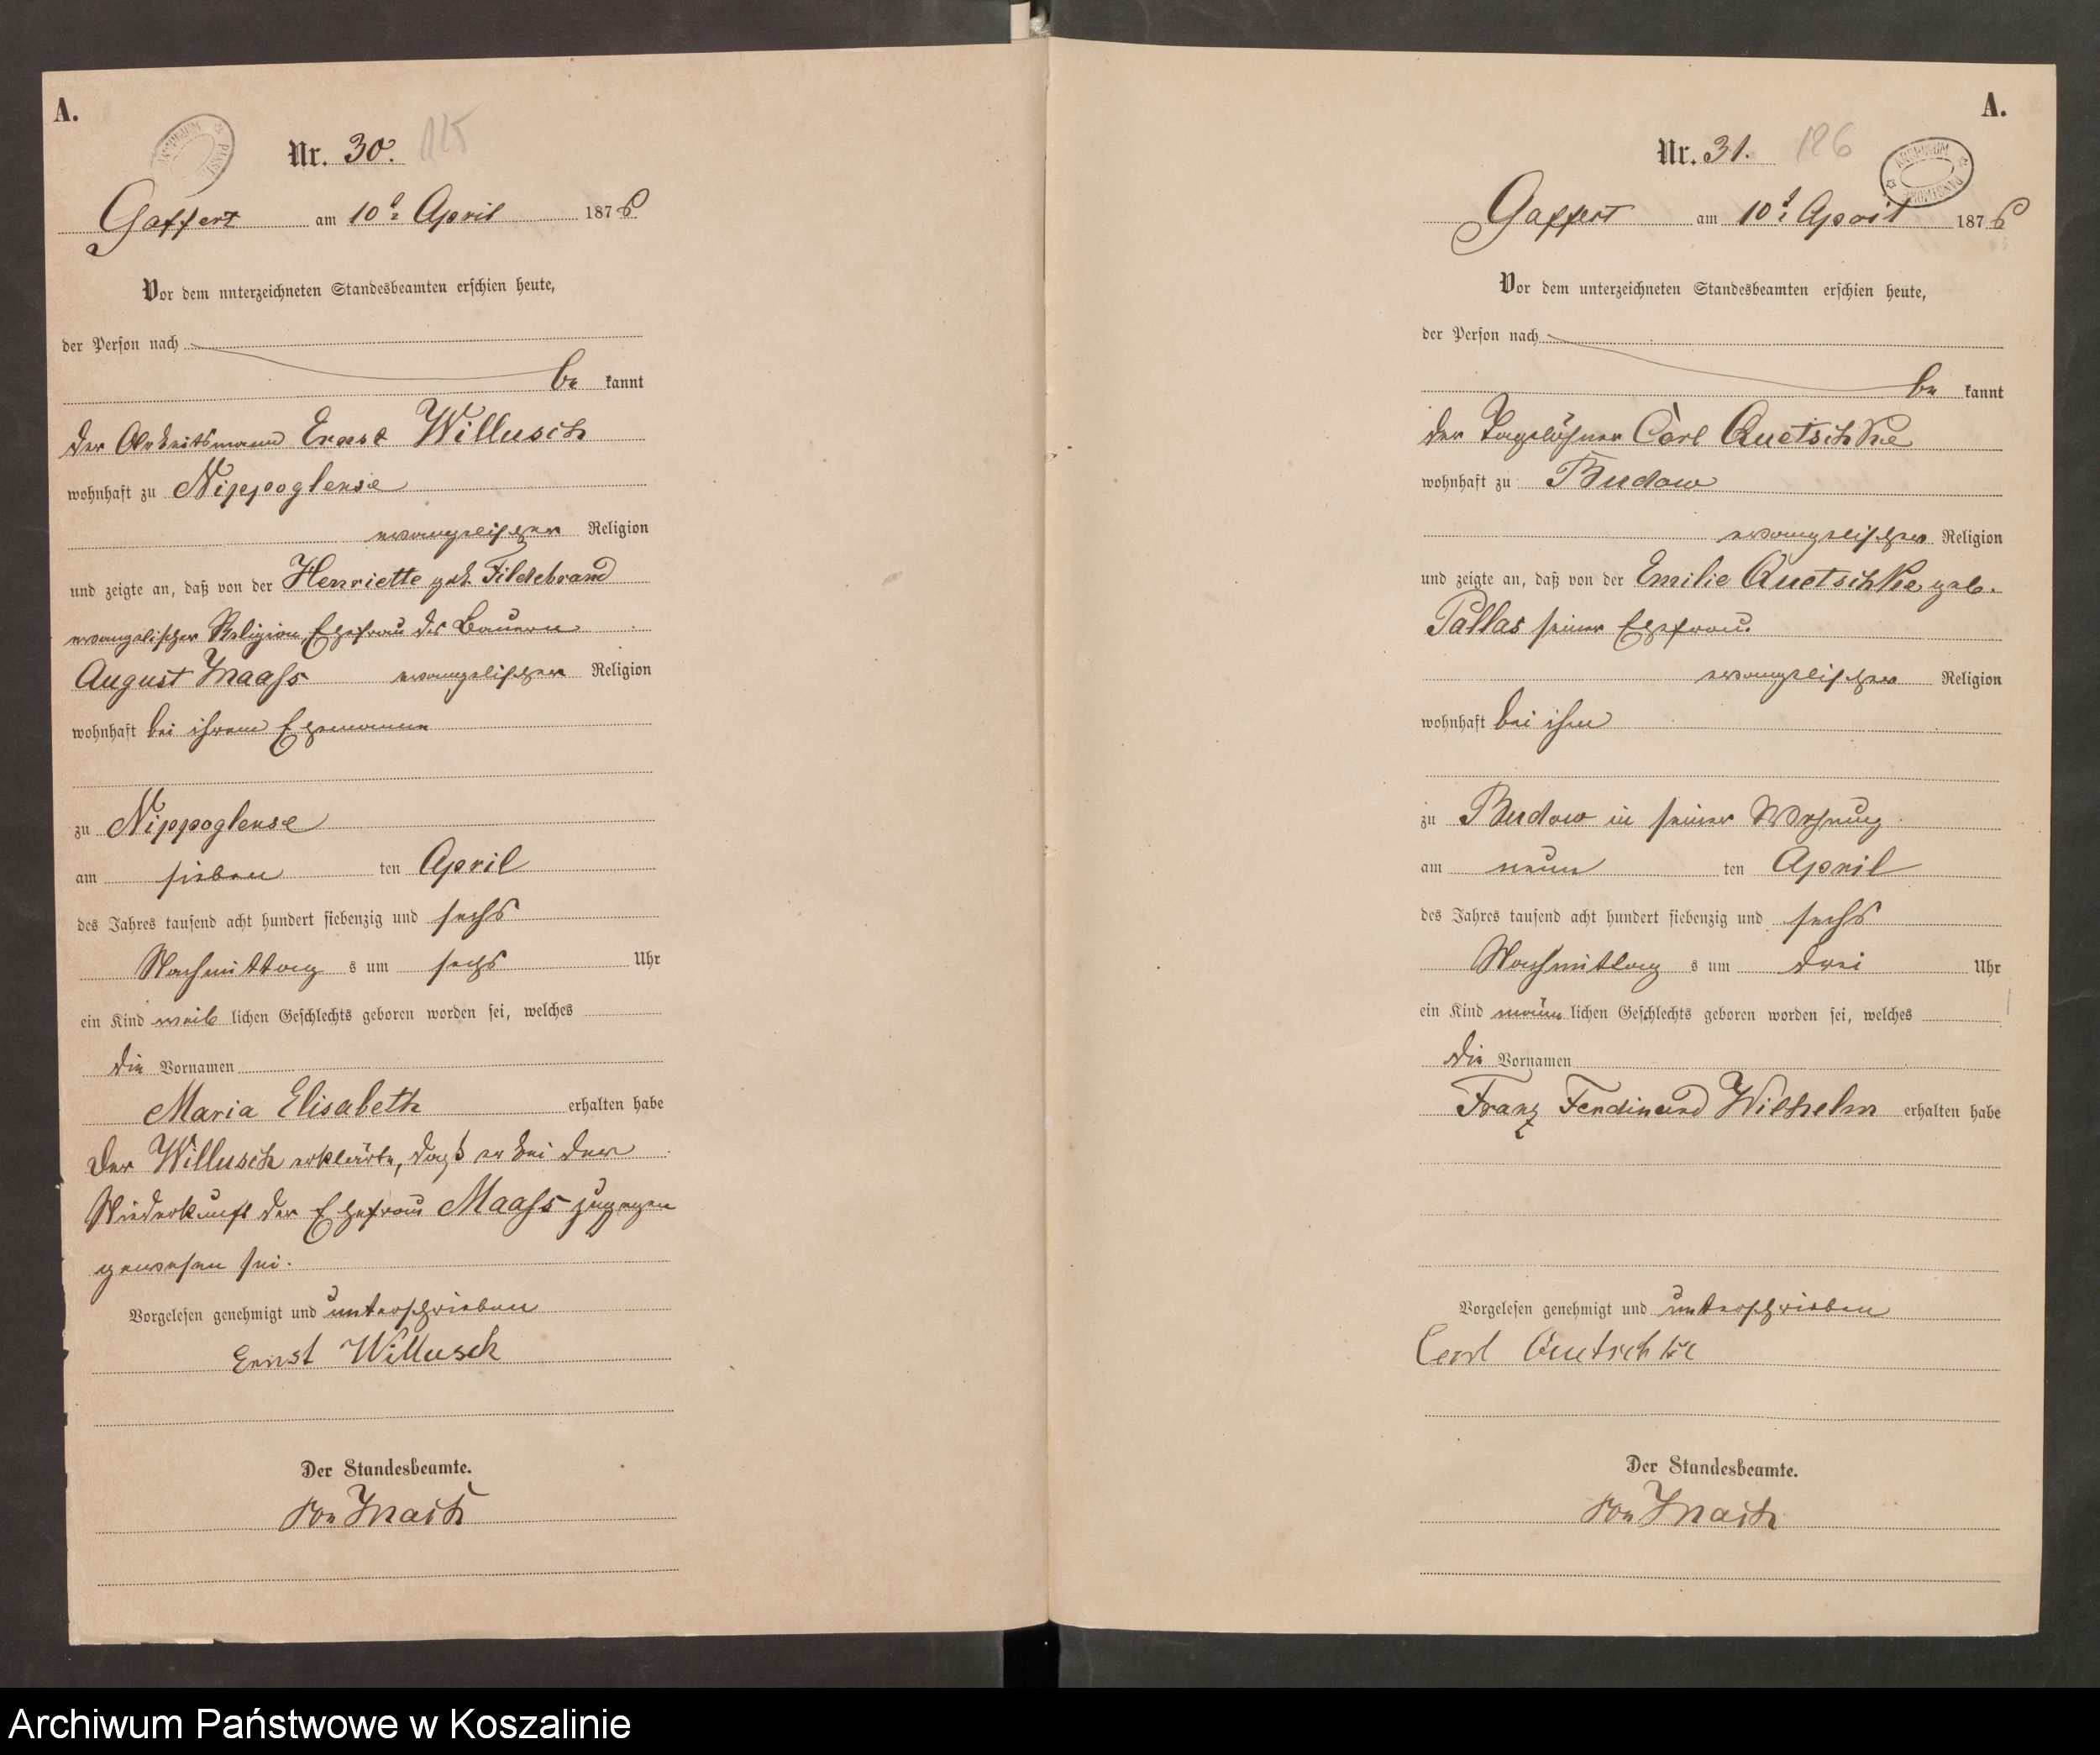 A.
Nr. 30. 125
Gaffert am 10t. April 1876
Vor dem unterzeichneten Standesbeamten erschien heute,
der Person nach
be kannt
der Arbeitsmann Ernst Willusch
wohnhaft zu Nippoglense
evangelischer Religion
und zeigte an, daß von der Henriette geb. Fildebrand
evangelischer Religion, Ehefrau des Bauern
August Maaß evangelischer Religion
wohnhaft bei ihrem Ehemanne
zu Nippoglense
am sieben ten April
des Jahres tausend acht hundert siebenzig und sechs
Nachmittag s um sechs Uhr
ein Kind weib lichen Geschlechts geboren worden sei, welches
die Vornamen
Maria Elisabeth erhalten habe
Der Willusch erklärte, daß er bei der
Niederkunft der Ehefrau Maaß zugegen
gewesen sei.
Vorgelesen genehmigt und unterschrieben
Ernst Willusch
Der Standesbeamte.
von
A.
Nr. 31. 126
ARCHIWUM PAŃSTWOWE
Gaffert am 10t. April 1876
Vor dem unterzeichneten Standesbeamten erschien heute,
der Person nach
be kannt
der Tagelöhner Carl Quetschke
wohnhaft zu Budow
evangelischer Religion
und zeigte an, daß von der Emilie Quetschke geb.
Pallas seiner Ehefrau
evangelischer Religion
wohnhaft bei ihm
zu Budow in seiner Wohnung
am neun ten April
des Jahres tausend acht hundert siebenzig und sechs
Nachmittag s um drei Uhr
ein Kind männ lichen Geschlechts geboren worden sei, welches
die Vornamen
Franz Ferdinand Wilhelm erhalten habe
Vorgelesen genehmigt und unterschrieben
Carl Quetschke
Der Standesbeamte.
von
Archiwum Państwowe w Koszalinie